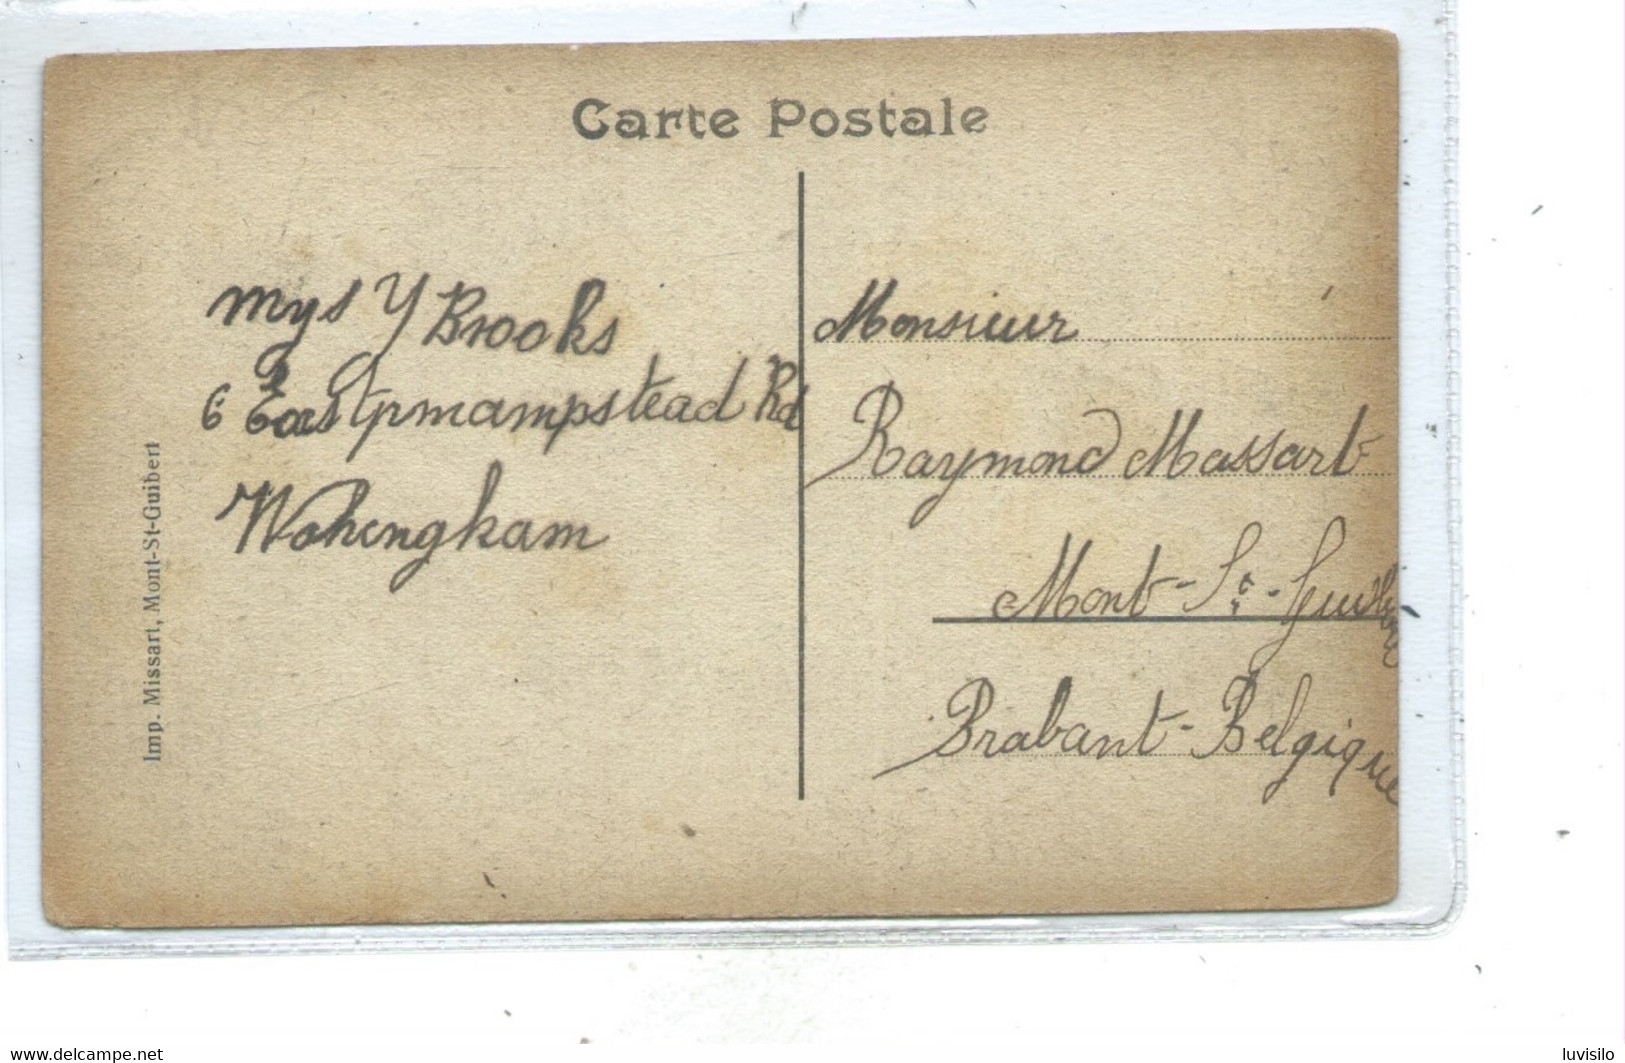 Carte Postale
Mys Y Brooks
6 Eastpmampstead Rd
Wohengham
Imp. Missart, Mont-St-Guibert
Monsieur
Raymond Massart
Mont-St-Guibert
Brabant-Belgique
www.delcampe.net
luvisilo